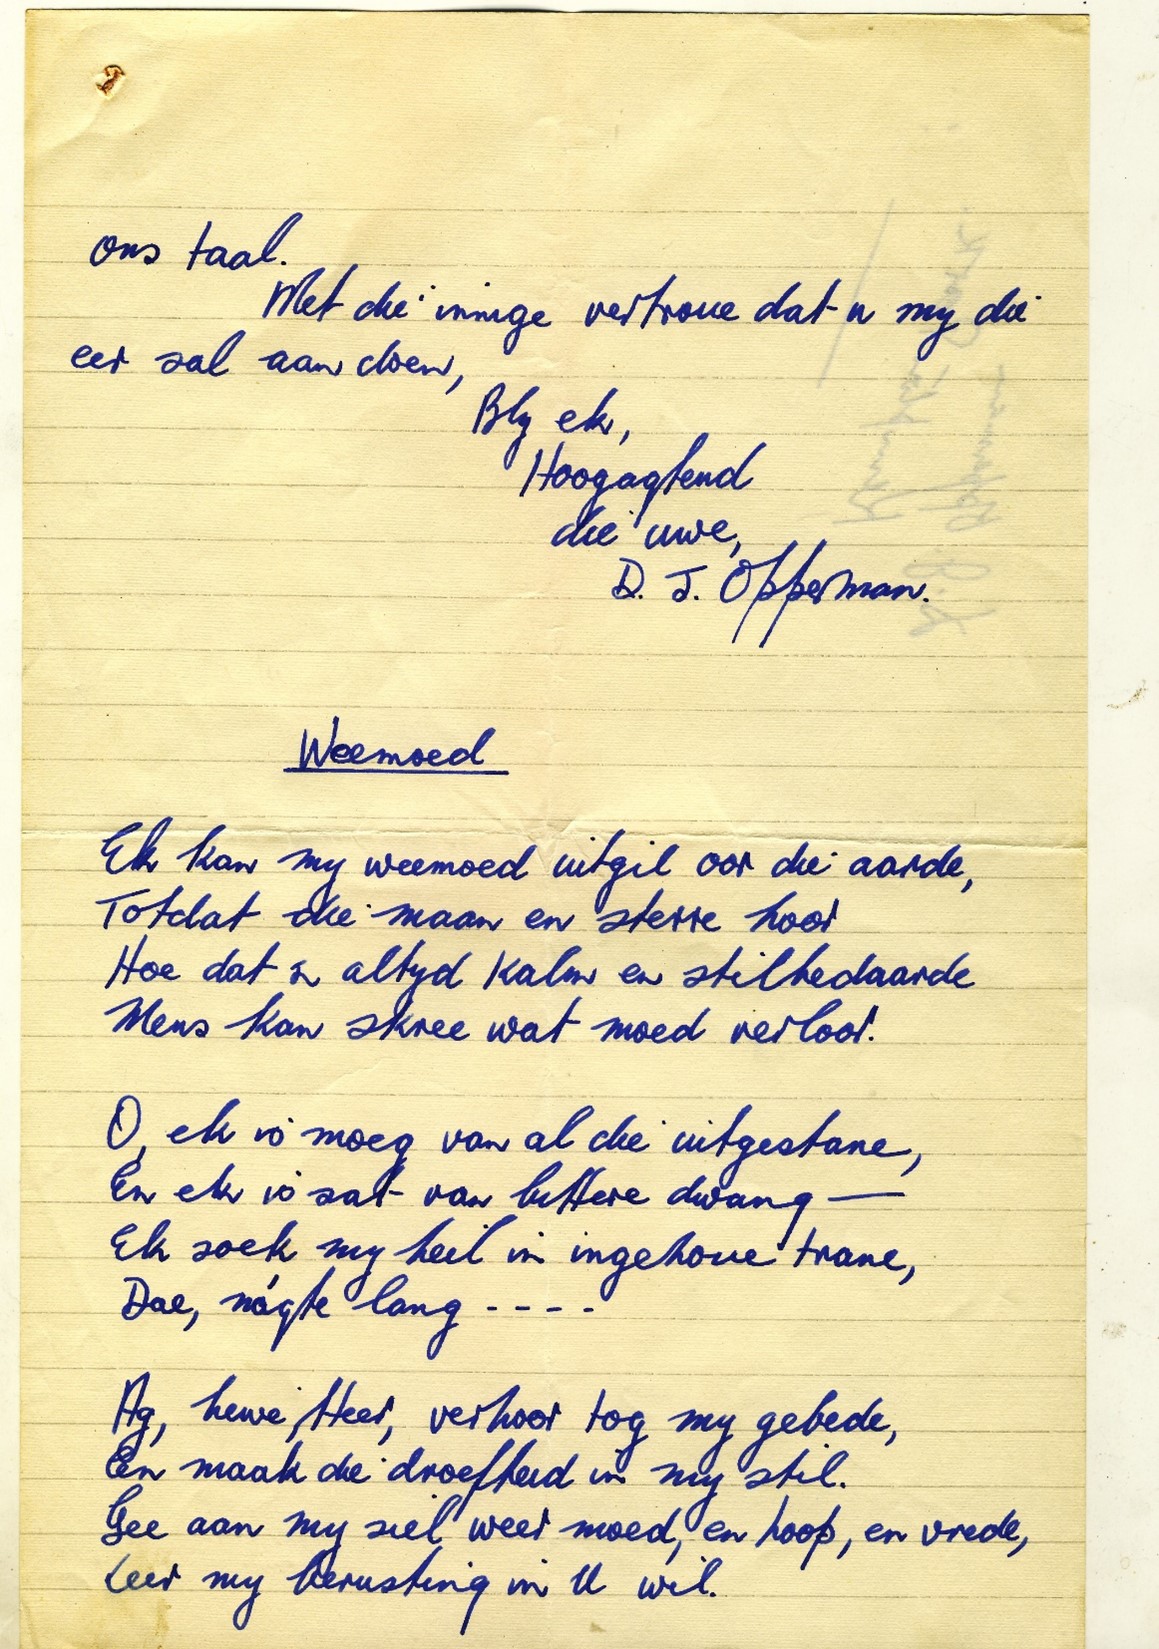 ons taal.
Met die innige vertroue dat u my die
eer sal aan doen,
Bly ek,
Hoogagtend
die uwe,
D. J. Opperman.
Weemoed
Ek kan my weemoed uitgil oor die aarde,
Totdat die maan en sterre hoor
Hoe dat 'n altyd kalm en stilbedaarde
Mens kan skree wat moed verloor.
O, ek is moeg van al die uitgestane,
En ek is sat van bittere dwang —
Ek soek my heil in ingehoue trane,
Dae, nágte lang - - - -
Ag, liewe Heer, verhoor tog my gebede,
En maak die droefheid in my stil.
Gee aan my siel weer moed, en hoop, en vrede,
Leer my berusting in U wil.